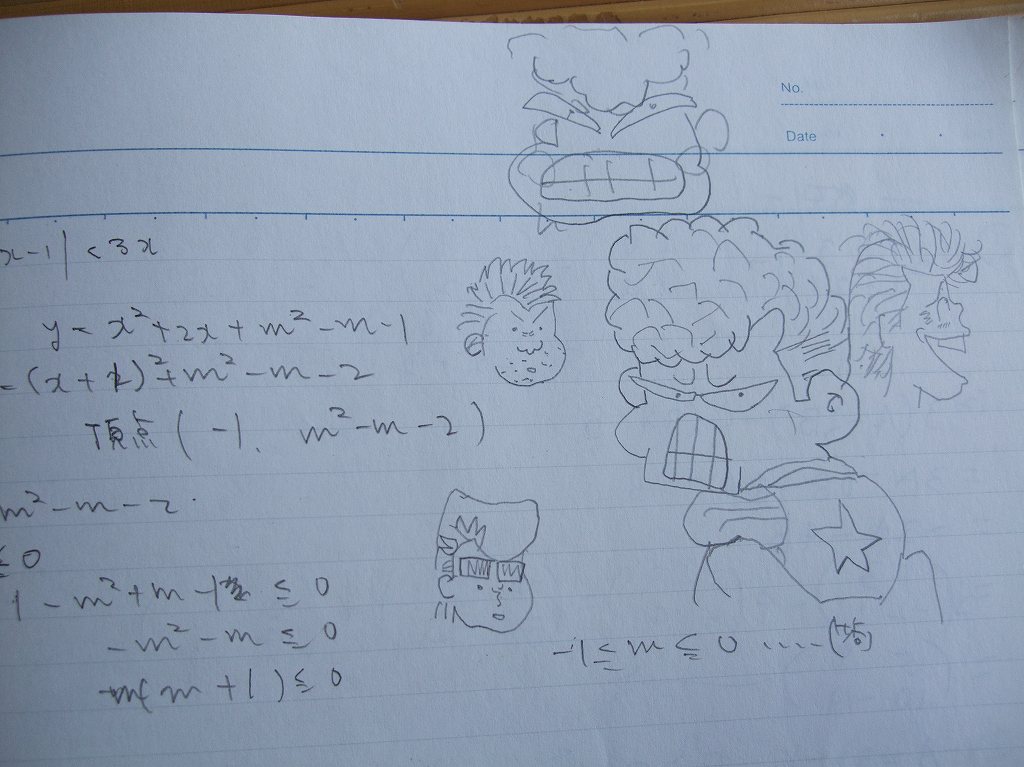 No.
Date
x-1|<3x
y=x²+2x+m²-m-1
=(x+1)²+m²-m-2
頂点(-1, m²-m-2)
m²-m-2
≦0
1-m²+m-1 ≦0
-m²-m≦0
m(m+1)≦0
-1≦m≦0 ....(答)